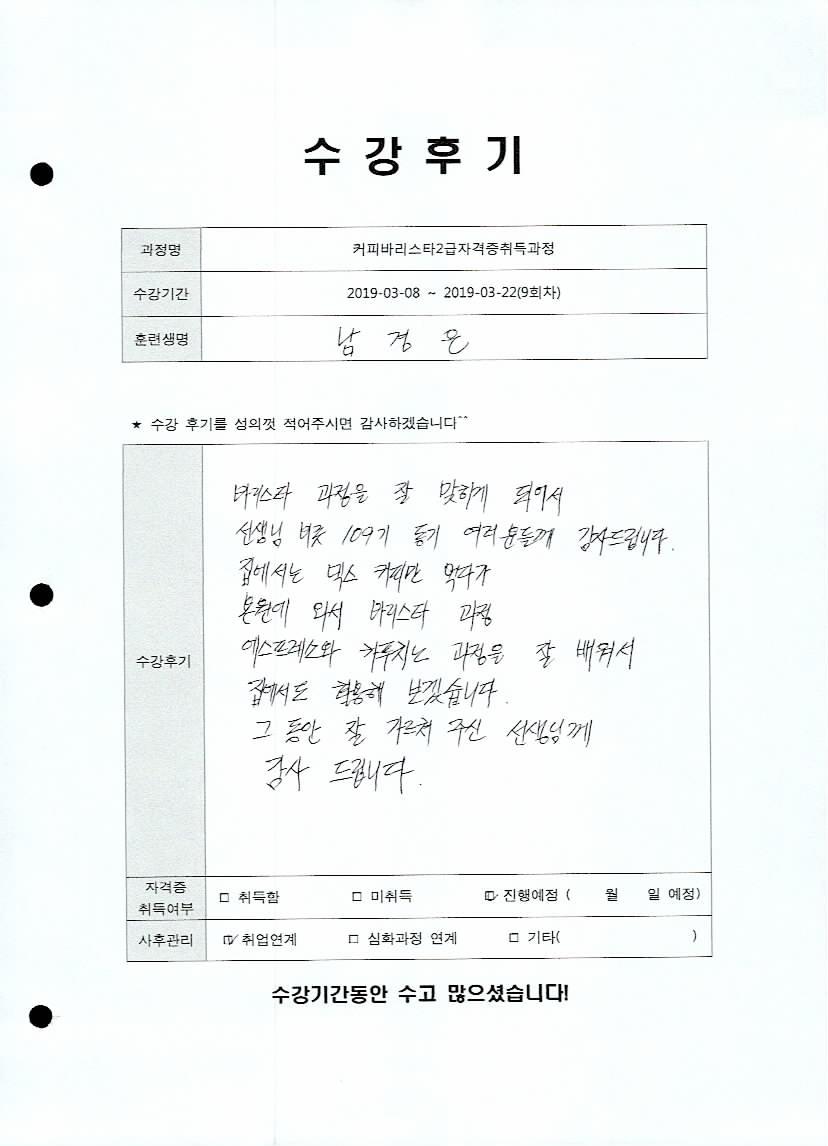 수강후기
과정명 커피바리스타2급자격증취득과정
수강기간 2019-03-08 ~ 2019-03-22(9회차)
훈련생명 남경은
★ 수강 후기를 성의껏 적어주시면 감사하겠습니다^^
수강후기
바리스타 과정을 잘 맞하게 되어서
선생님 비롯 109기 동기 여러분들께 감사드립니다.
집에서는 믹스 커피만 먹다가
본원에 와서 바리스타 과정
에스프레소와 카푸치노 과정을 잘 배워서
집에서도 활용해 보겠습니다.
그 동안 잘 가르쳐 주신 선생님께
감사 드립니다.
자격증 취득여부 □ 취득함 □ 미취득 ☑ 진행예정 ( 월 일 예정)
사후관리 ☑ 취업연계 □ 심화과정 연계 □ 기타( )
수강기간동안 수고 많으셨습니다!